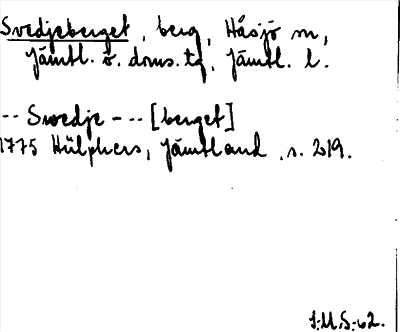 Svedjeberget, berg, Håsjö sn,
Jämtl. ö. doms. tg, Jämtl. l.
-- Swedje --- [berget]
1775 Hülphers, Jämtland, s. 219.
I.M.S. 62.